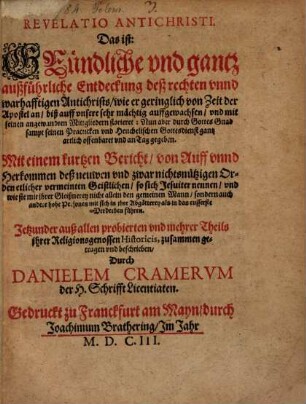 REVELATIO ANTICHRISTI.
Das ist:
Gründliche vnd gantz
außführliche Entdeckung deß rechten vnnd
warhafftigen Antichrists/ wie er geringlich von Zeit der
Apostel an/ biß auff vnsere sehr mächtig auffgewachsen/ vnd mit
seinen angewandten Mitgliedern floriere: Nun aber durch Gottes Gnad
sampt seinen Practicken vnd Heuchelischen Gottesdienst gantz
artlich offenbaret vnd an Tag gegeben.
Mit einem kurtzen Bericht/ von Auff vnnd
Herkommen deß neuwen vnd zwar nichtsnützigen Or-
den etlicher vermeinten Geistlichen/ so sich Jesuiter nennen/ vnd
wie sie mit ihrer Gleißnerey nicht allein den gemeinen Mann/ sondern auch
andere hohe Personen mit sich in ihre Abgötterey als in das eusserste
Verderben führen.
Jetzunder auß allen probierten vnd mehrer Theils
ihren Religionsgenossen Historicis, zusammen ge-
tragen vnd beschrieben/
Durch
DANIELEM CRAMERVM
der H. Schrifft Licentiaten.
Gedruckt zu Franckfurt am Mayn/ durch
Joachimum Brathering/ Im Jahr
M. D. C. III.